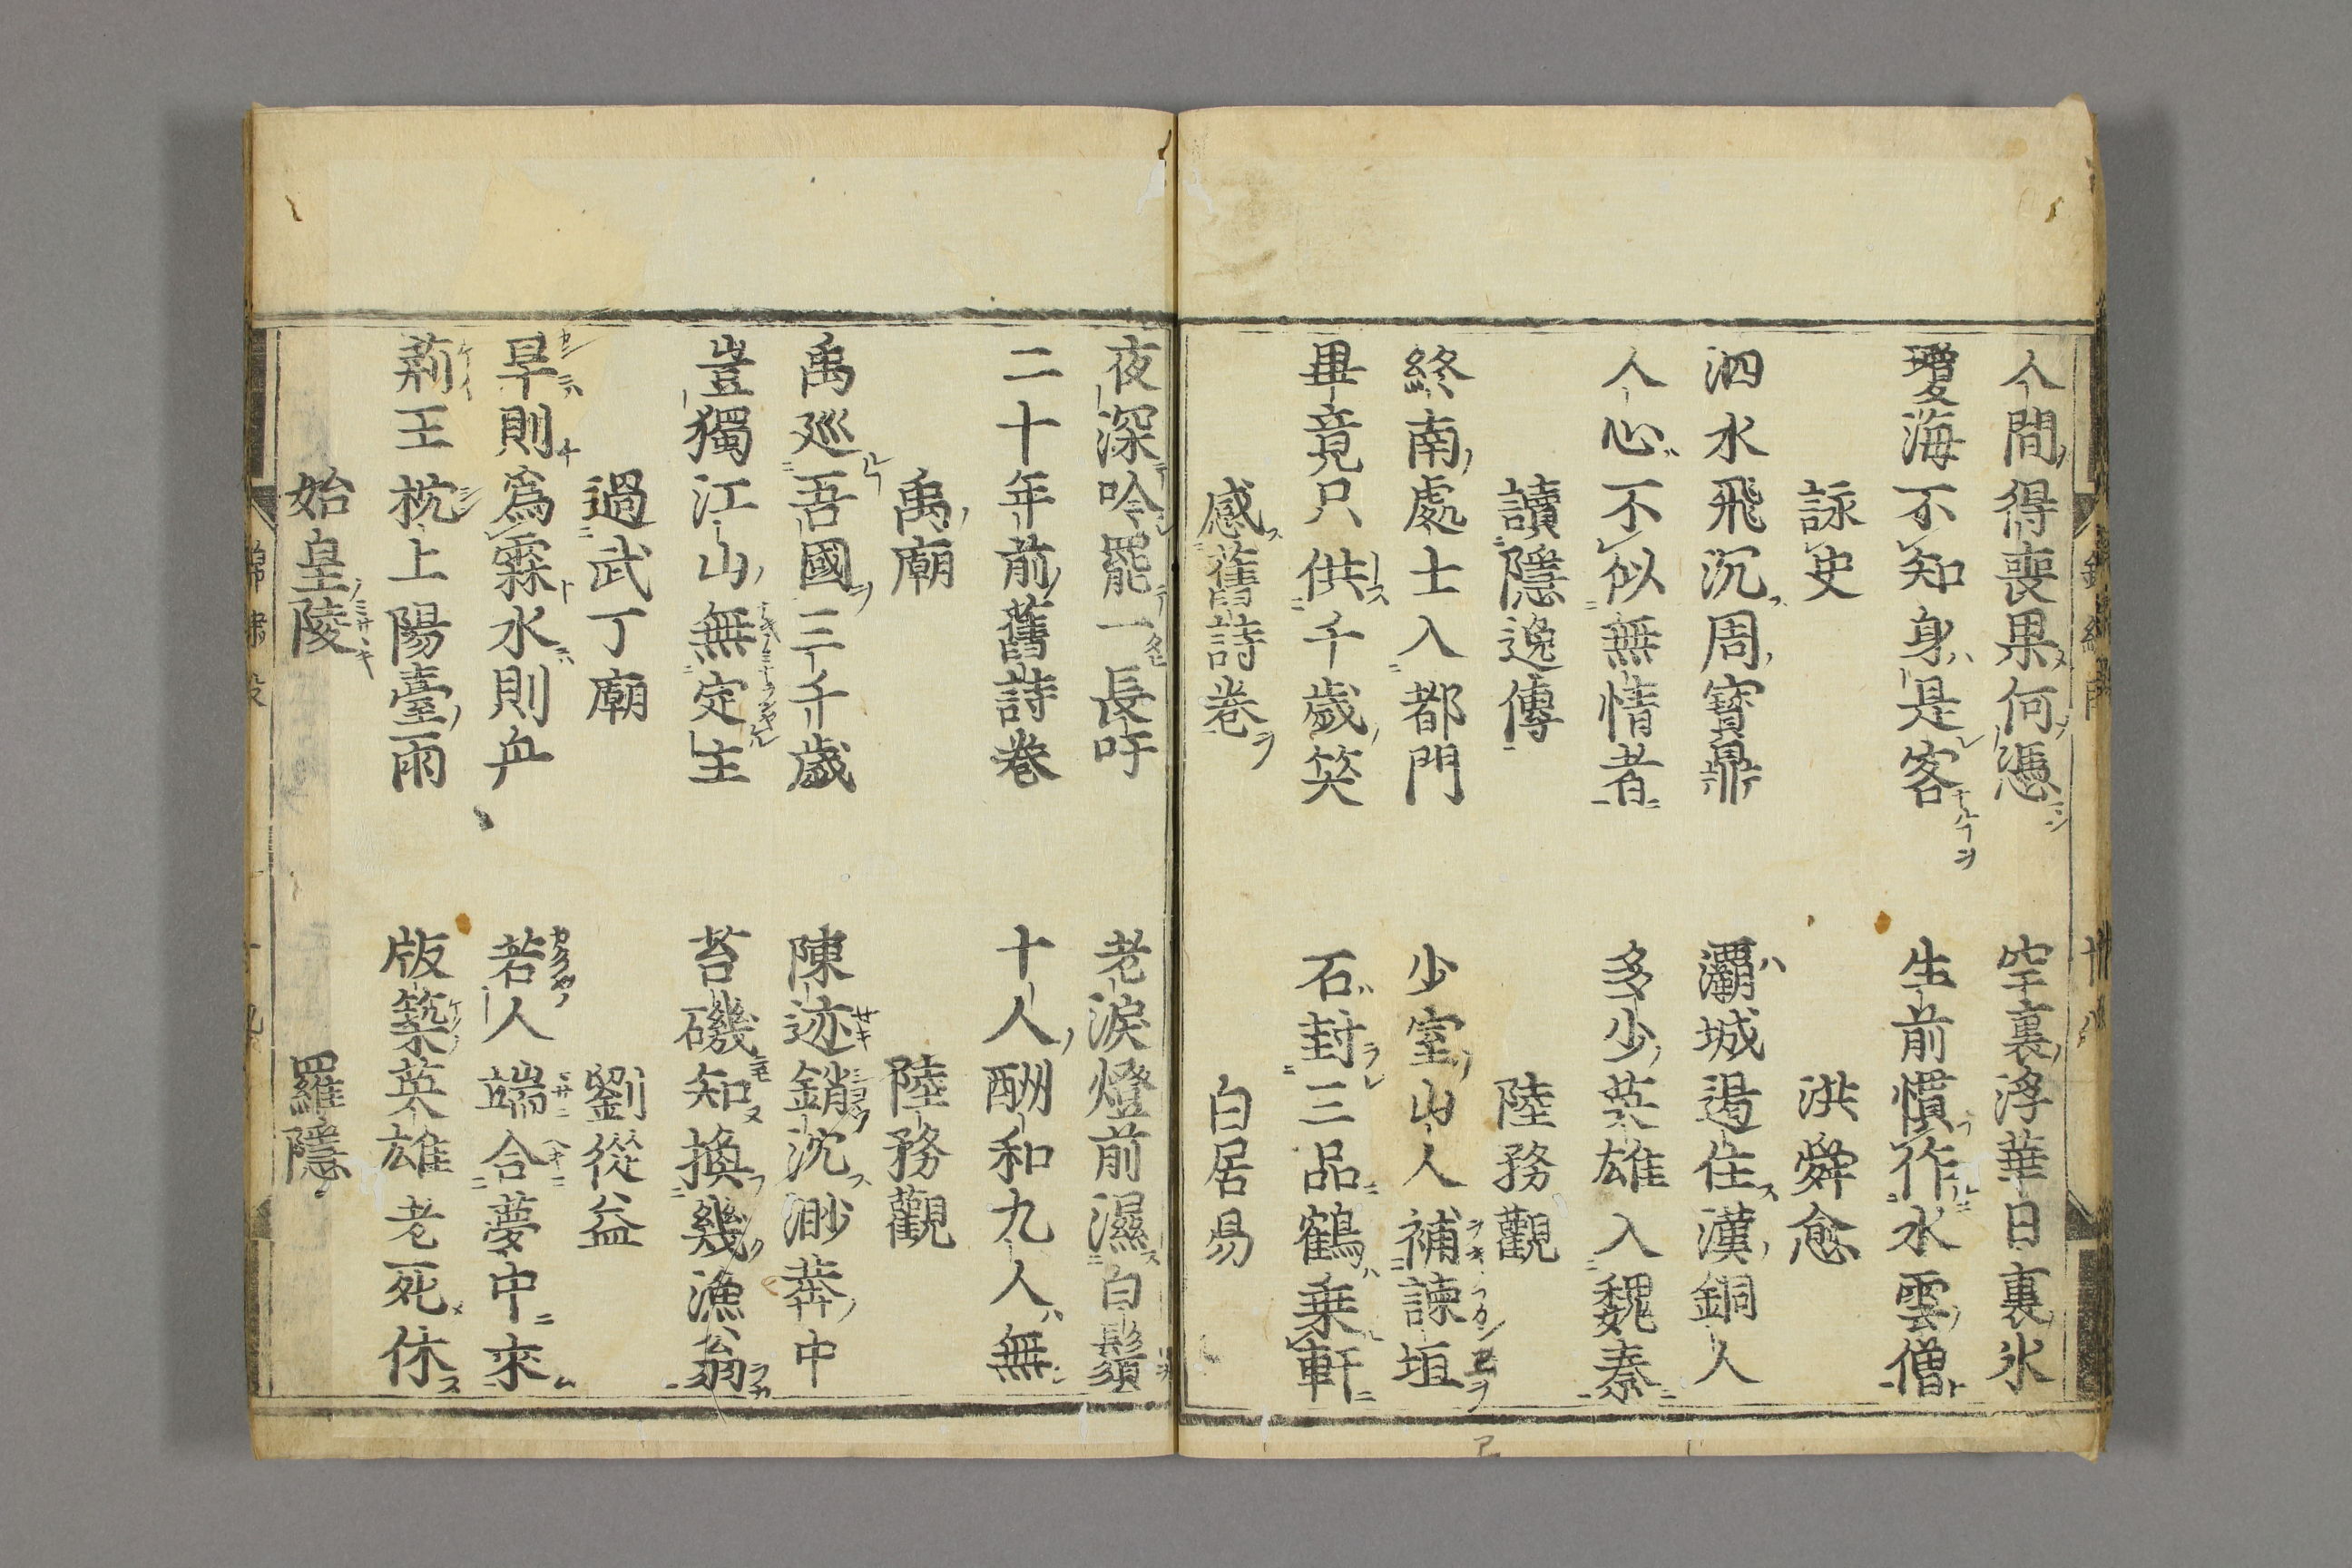 人間得喪果何憑　空裏浮華日裏氷
愛海不知身是客　生前慣作水雲僧
詠史　洪舜兪
泗水飛沉周寳鼎　灞城遏住漢銅人
人心不似無情者　多少英雄入魏秦
讀隱逸傳　陸務觀
終南處士入都門　少室山人補諫垣
畢竟只供千歲笑　石封三品鶴乗軒
感舊詩巻　白居易
夜深吟罷一長吁　老淚燈前濕白鬚
二十年前舊詩巻　十人酬和九人無
禹廟　陸務觀
禹廵吾國三千歲　陳迹銷沈渺莽中
豈獨江山無定主　苔磯知換幾漁翁
過武丁廟　劉從益
旱則為霖水則舟　若人端合夢中求
荊王枕上陽臺雨　版築英雄老死休
始皇陵　羅隱